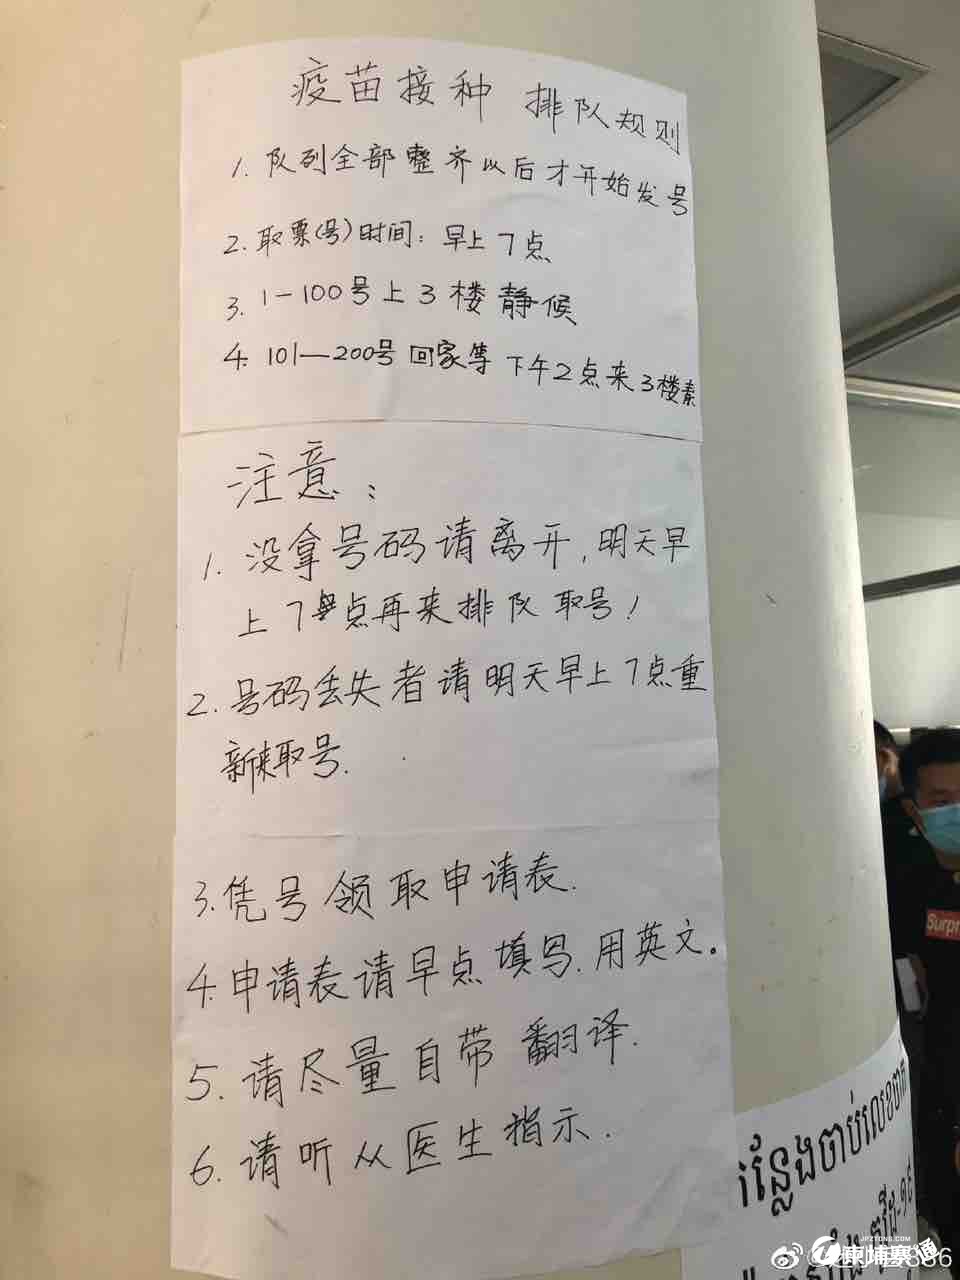 疫苗接种 排队规则
1. 队列全部整齐以后才开始发号
2. 取票(号)时间: 早上7点
3. 1-100号上3楼静候
4. 101—200号回家等 下午2点来3楼
注意:
1. 没拿号码请离开, 明天早
上7点再来排队取号!
2. 号码丢失者请明天早上7点重
新来取号.
3. 凭号领取申请表.
4. 申请表请早点填写. 用英文。
5. 请尽量自带翻译.
6. 请听从医生指示.
Supr
កន្លែងចាប់លេខ
JPZTONG.COM
柬埔寨通